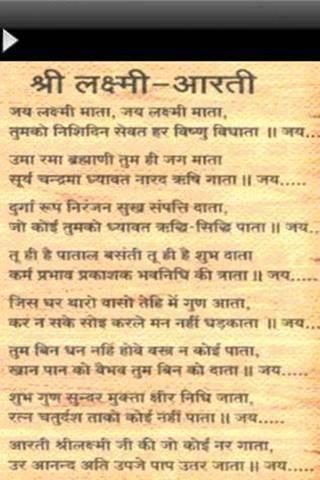 श्री लक्ष्मी-आरती
जय लक्ष्मी माता, जय लक्ष्मी माता,
तुमको निशिदिन सेवत हर विष्णु विधाता ॥ जय...
उमा रमा ब्रह्माणी तुम ही जग माता
सूर्य चन्द्रमा ध्यावत नारद ऋषि गाता ॥ जय.....
दुर्गा रूप निरंजन सुख संपत्ति दाता,
जो कोई तुमको ध्यावत ऋद्धि-सिद्धि पाता ॥ जय....
तू ही है पाताल बसंती तू ही है शुभ दाता
कर्म प्रभाव प्रकाशक भवनिधि की त्राता ॥ जय....
जिस घर थारो वासो तेहि में गुण आता,
कर न सके सोइ करले मन नहीं धड़काता ॥ जय...
तुम बिन धन नहिं होवे वस्त्र न कोई पाता,
खान पान को वैभव तुम बिन को दाता ॥ जय....
शुभ गुण सुन्दर मुक्ता क्षीर निधि जाता,
रत्न चतुर्दश ताको कोई नहीं पाता ॥ जय.....
आरती श्रीलक्ष्मी जी की जो कोई नर गाता,
उर आनन्द अति उपजे पाप उतर जाता ॥ जय....